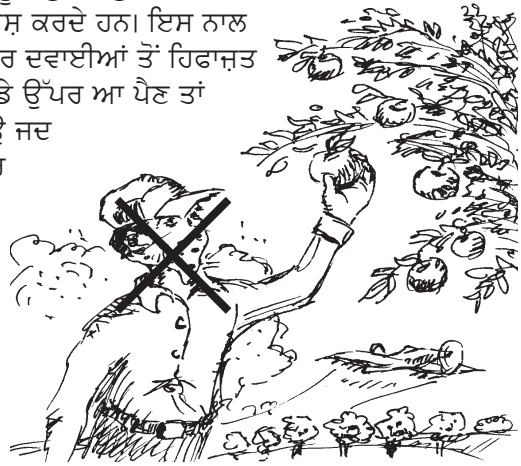 ਕਰਦੇ ਹਨ। ਇਸ ਨਾਲ
ਦਵਾਈਆਂ ਤੋਂ ਹਿਫਾਜ਼ਤ
ਉੱਪਰ ਆ ਪੈਣ ਤਾਂ
ਜਦ